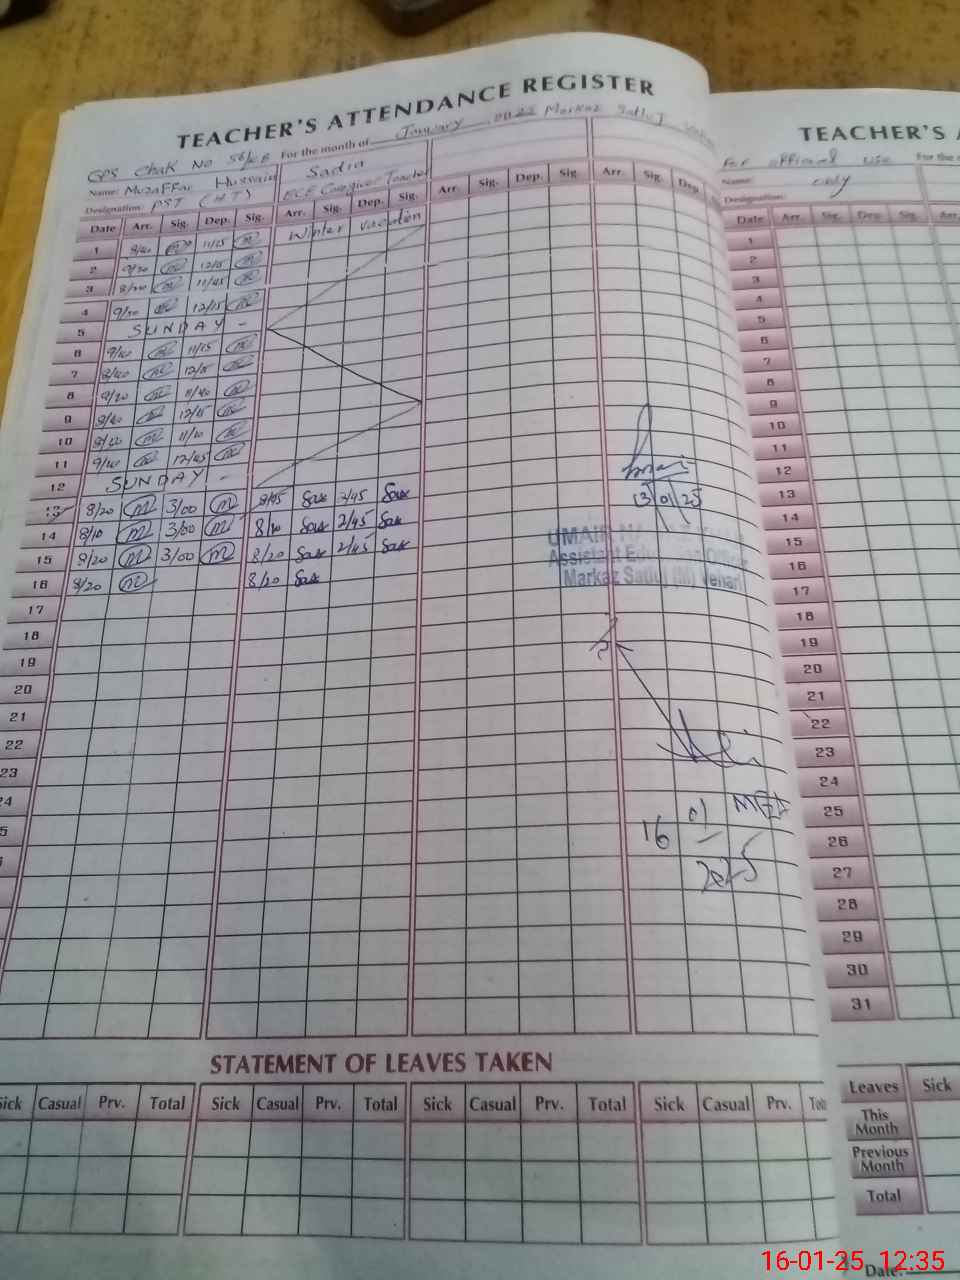 TEACHER'S ATTENDANCE REGISTER
GPS Chak No 56/KB For the month of January Markaz Satluj
Name: Muzaffar Hussain Sadia
Designation: PST (HT) ECE Caregiver Teacher
Date Arr. Sig. Dep. Sig. Arr. Sig. Dep. Sig. Arr. Sig. Dep. Sig. Arr. Sig. Dep.
1 8/40 11/15 Winter vacation
2 9/20 12/15
3 8/20 11/45
4 9/30 12/15
5 SUNDAY -
6 9/40 11/15
7 8/40 12/15
8 9/20 11/40
9 8/40 12/15
10 11/20
11 9/40 12/45
12 SUNDAY -
13 8/20 m 3/00 m 8/45 2/45
14 8/10 m 3/00 m 8/10 2/45
15 8/20 m 3/00 m 8/20 2/45
16 8/20 m 8/20
17
18
19
20
21
22
23
13 01 25
UMAIR
Assistant Education Officer
Markaz Satluj (M) Vehari
16 01 2025
STATEMENT OF LEAVES TAKEN
Sick Casual Prv. Total Sick Casual Prv. Total Sick Casual Prv. Total Sick Casual Prv.
TEACHER'S
For official use
only
For the
Name:
Designation:
Date Arr. Sig. Dep. Sig. Arr.
1
2
3
4
5
6
7
8
9
10
11
12
13
14
15
16
17
18
19
20
21
22
23
24
25
26
27
28
29
30
31
Leaves Sick
This Month
Previous Month
Total
Date:
16-01-25 12:35